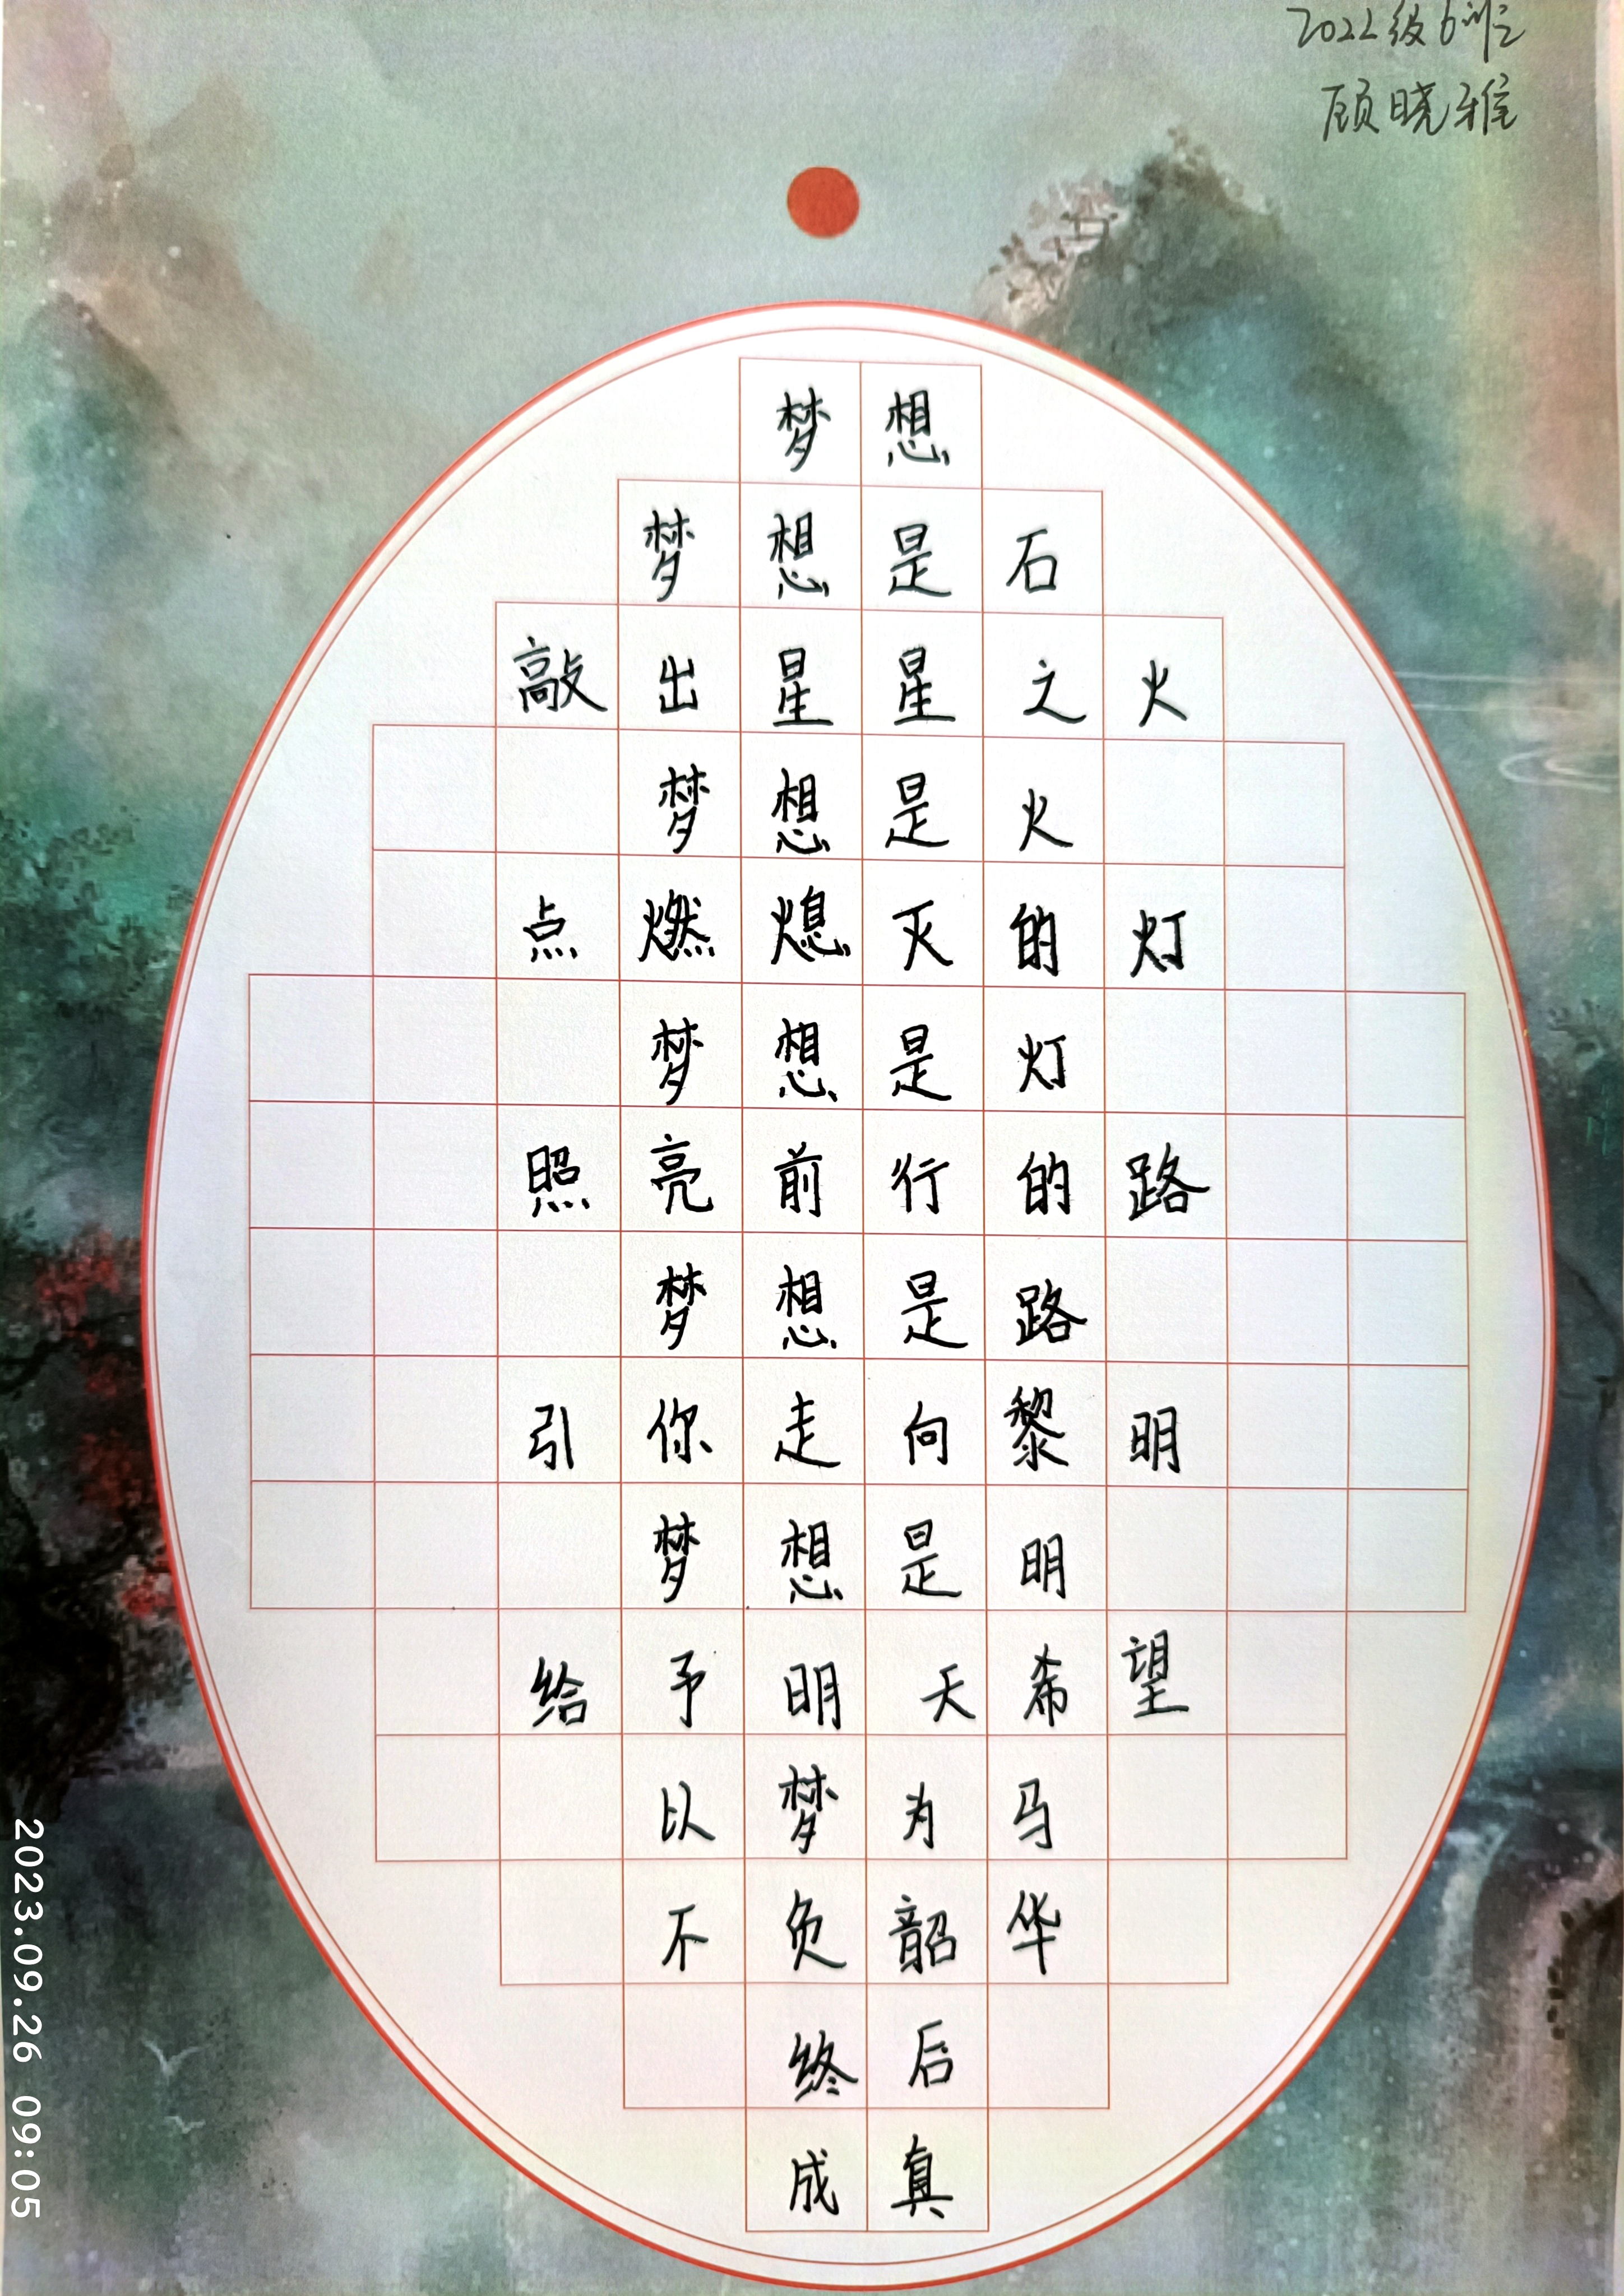 2022级6班
顾晓雅
梦想
梦想是石
敲出星星之火
梦想是火
点燃熄灭的灯
梦想是灯
照亮前行的路
梦想是路
引你走向黎明
梦想是明
给予明天希望
以梦为马
不负韶华
终后
成真
2023.09.26 09:05